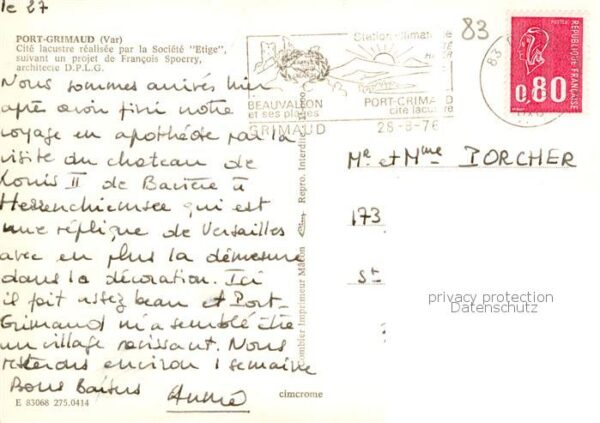 le 27
PORT-GRIMAUD (Var)
Cité lacustre réalisée par la Société "Etige",
suivant un projet de François Spoerry,
architecte D.P.L.G.
Nous sommes arrivés hier
après avoir fini notre
voyage en apothéose par la
visite du chateau de
Louis II de Bavière à
Herrenchiemsee qui est
une réplique de Versailles
avec en plus la démesure
dans la décoration. Ici
il fait assez beau et Port-
Grimaud m'a semblé être
un village ravissant. Nous
resterons environ 1 semaine
Bons Baisers
E 83068 275.0414
cimcrome
Combier Imprimeur Mâcon
Repro. Interdite
Station climatique
BEAUVALLON
et ses plages
PORT-GRIMAUD
cité lacustre
GRIMAUD
28-8-76
83
83
POSTES
RÉPUBLIQUE FRANÇAISE
0,80
Mr et Mme PORCHER
173
St
privacy protection
Datenschutz